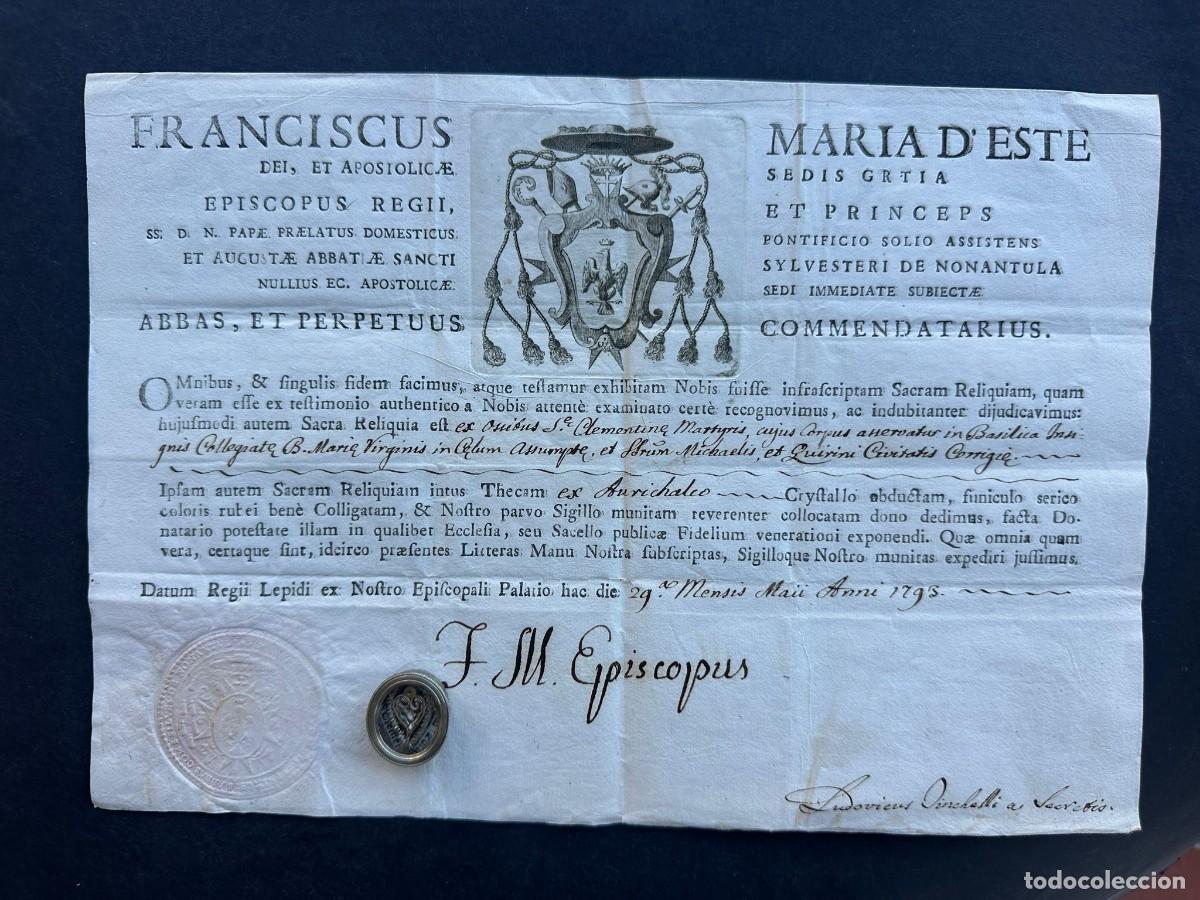 FRANCISCUS MARIA D'ESTE
DEI, ET APOSTOLICÆ SEDIS GRTIA
EPISCOPUS REGII, ET PRINCEPS
SS. D. N. PAPÆ PRÆLATUS DOMESTICUS PONTIFICIO SOLIO ASSISTENS
ET AUGUSTÆ ABBATIÆ SANCTI SYLVESTERI DE NONANTULA
NULLIUS EC. APOSTOLICÆ SEDI IMMEDIATE SUBIECTÆ
ABBAS, ET PERPETUUS COMMENDATARIUS.
OMnibus, & singulis fidem facimus, atque testamur exhibitam Nobis fuisse infrascriptam Sacram Reliquiam, quam
veram esse ex testimonio authentico a Nobis attentè examinato certè recognovimus, ac indubitanter dijudicavimus:
hujusmodi autem Sacra Reliquia est ex Ossibus S.ę Clementinę Martyris, cujus Corpus asservatur in Basilica Insi-
gnis Collegiatę B. Marię Virginis in Cęlum Assumptę, et Ssrum Michaelis, et Quirini Civitatis Corrigię
Ipsam autem Sacram Reliquiam intus Thecam ex Aurichalco Crystallo obductam, funiculo serico
coloris rubei benè Colligatam, & Nostro parvo Sigillo munitam reverenter collocatam dono dedimus, facta Do-
natario potestate illam in qualibet Ecclesia, seu Sacello publicæ Fidelium venerationi exponendi. Quæ omnia quam
vera, certaque sint, idcirco præsentes Litteras Manu Nostra subscriptas, Sigilloque Nostro munitas expediri jussimus.
Datum Regii Lepidi ex Nostro Episcopali Palatio hac die 29.a Mensis Maii Anni 1793.
F. M. Episcopus
Ludovicus a Secretis.
todocoleccion